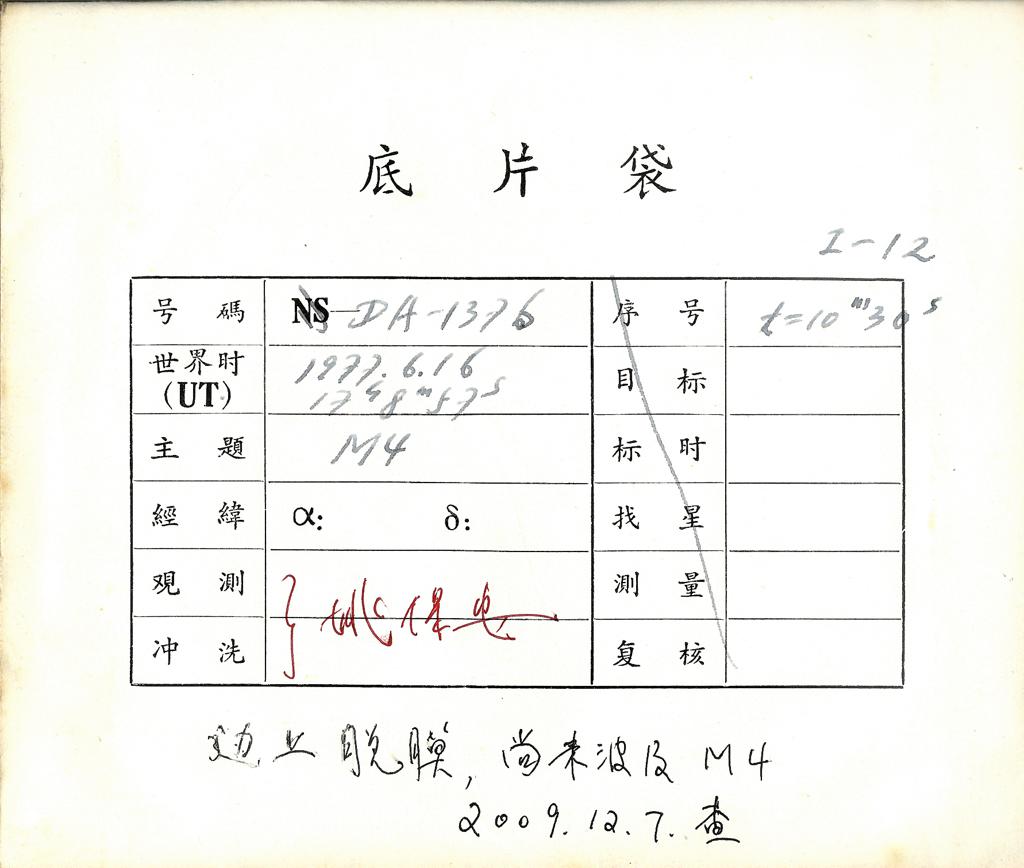 底片袋
I-12
号碼 NS—DA-1376 序号 t=10ᵐ30ˢ
世界时(UT) 1977.6.16 目标
17ʰ8ᵐ57ˢ
主題 M4 标时
經緯 α: δ: 找星
观測 測量
冲洗 复核
边上脱膜,尚未波及 M4
2009.12.7.查